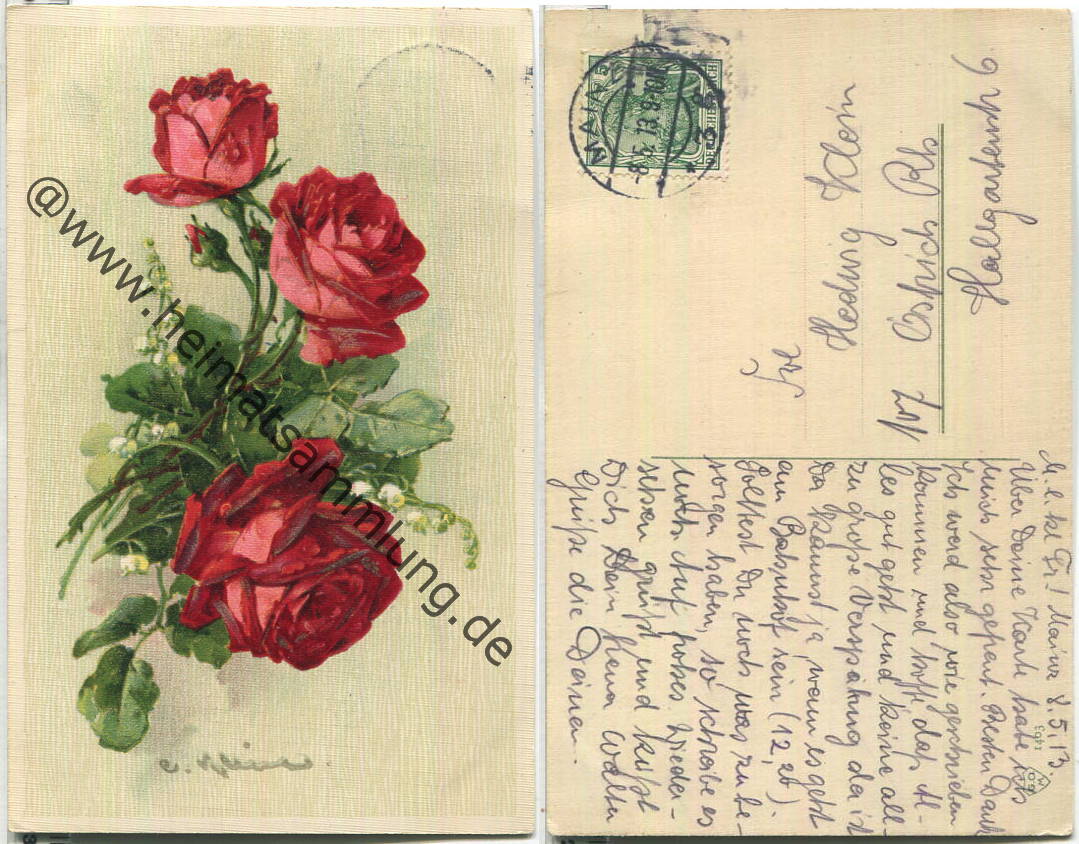 @www.heimatsammlung.de
C. Klein
MAINZ
8.5.13.8-9
DEUTSCHES REICH
Frl
Hedwig Klein
Hallgarterstr 6
M. l. kl Fr! Mainz 8.5.13.
Über Deine Karte habe ich
mich sehr gefreut. Besten Dank
Ich werd also wie geschrieben
kommen und hoffe daß Al-
les gut geht und keine all-
zu große Verspätung da ist
Du kannst ja, wenn es geht
am Bahnhof sein (12,21)
Solltest Du noch was zu be-
sorgen haben, so schreibe es
noch. Auf frohes Wieder-
sehen grüßt und küßt
Dich Dein Walter
Grüße die Deinen.